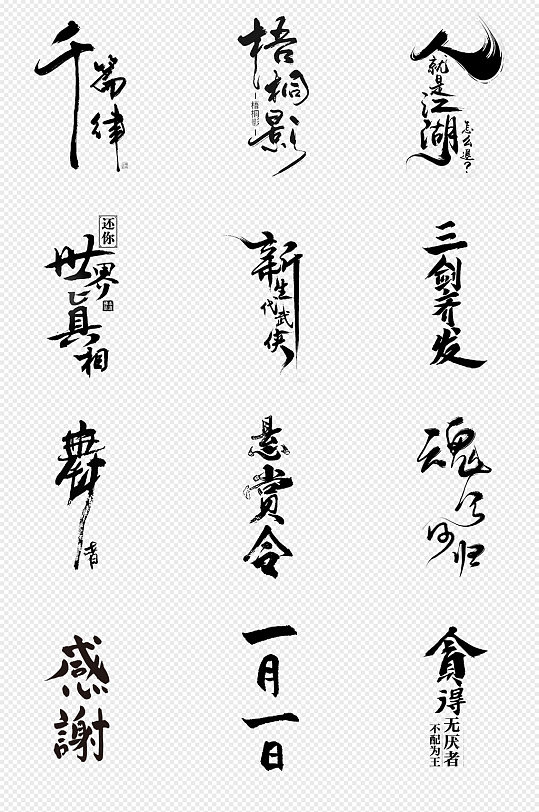 千篇律
梧桐影
梧桐影
人就是江湖
怎么退?
还你
世界真相
新生代武侠
三剑齐发
舞者
悬赏令
魂兮归
感謝
一月一日
貪得无厌者
不配为王